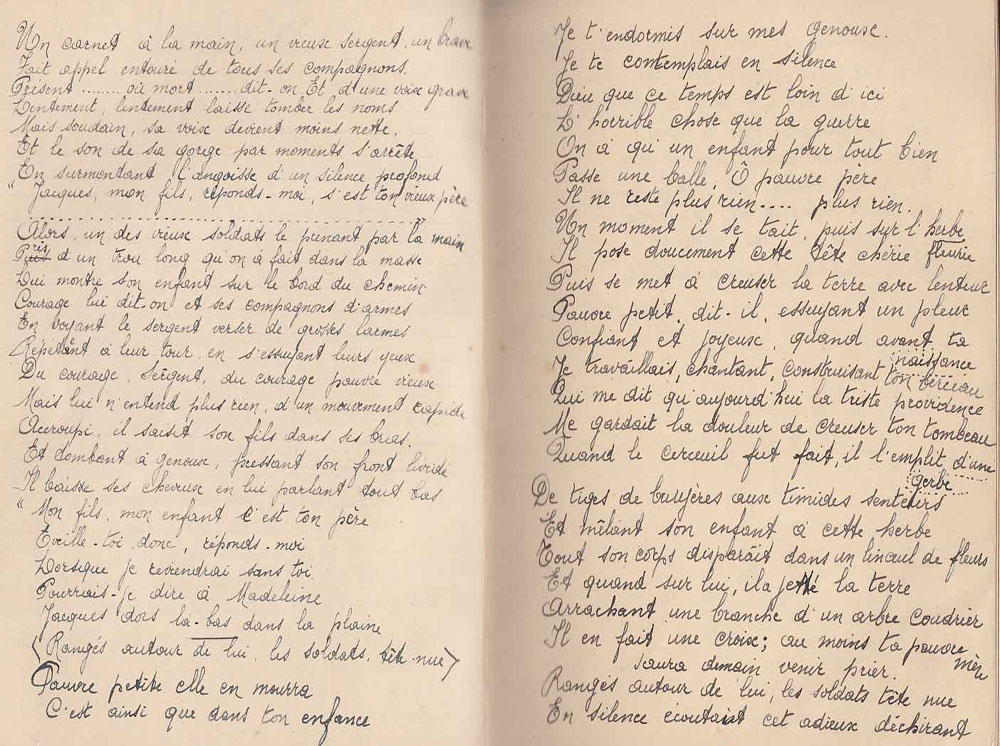 Un carnet à la main, un vieux sergent, un brave
Fait appel entouré de tous ses compagnons.
Présent ........ où mort ........ dit-on. Et d'une voix grave
Lentement, lentement laisse tomber les noms
Mais soudain, sa voix devient moins nette,
Et le son de sa gorge par moments s'arrête
En surmontant l'angoisse d'un silence profond
"Jacques, mon fils, réponds-moi, s'est ton vieux père
........................................"
Alors, un des vieux soldats le prenant par la main
Près d'un trou long qu'on à fait dans la masse
Lui montre son enfant sur le bord du chemin
Courage lui dit-on et ses compagnons d'armes
En voyant le sergent verser de grosses larmes
Répétant à leur tour, en s'essuyant leurs yeux
Du courage, Sergent, du courage pauvre vieux
Mais lui n'entend plus rien, d'un mouvement rapide
Accroupi, il saisit son fils dans ses bras.
Et tombant à genoux, pressant son front livide
Il baisse ses cheveux en lui parlant tout bas
"Mon fils, mon enfant c'est ton père
Eveille-toi donc, réponds-moi
Lorsque je reviendrai sans toi
Pourrais-je dire à Madeleine
Jacques dors la-bas dans la plaine
(Rangés autour de lui, les soldats, tête nue)
Pauvre petite elle en mourra
C'est ainsi que dans ton enfance
Je t'endormis sur mes Genoux.
Je te contemplais en silence
Dieu que ce temps est loin d'ici
L'horrible chose que la guerre
On à qu'un enfant pour tout bien
Passe une balle, Ô pauvre père
Il ne reste plus rien.... plus rien.
Un moment il se tait, puis sur l'herbe
Il pose doucement cette tête chérie fleurie
Puis se met à creuser la terre avec lenteur
Pauvre petit, dit-il, essuyant un pleur
Confiant et joyeux, quand avant ta
naissance
Je travaillais, chantant, construisant ton berceau
Qui me dit qu'aujourd'hui la triste providence
Me gardait la douleur de creuser ton tombeau
Quand le cerceuil fut fait, il l'emplit d'une
gerbe
De tiges de bruyères aux timides senteurs
Et mêlant son enfant à cette herbe
Tout son corps disparaît dans un linceul de fleurs
Et quand sur lui, il a jetté la terre
Arrachant une branche d'un arbre coudrier
Il en fait une croix; au moins ta pauvre mère
saura demain venir prier.
Rangés autour de lui, les soldats tête nue
En silence écoutaient cet adieux déchirant